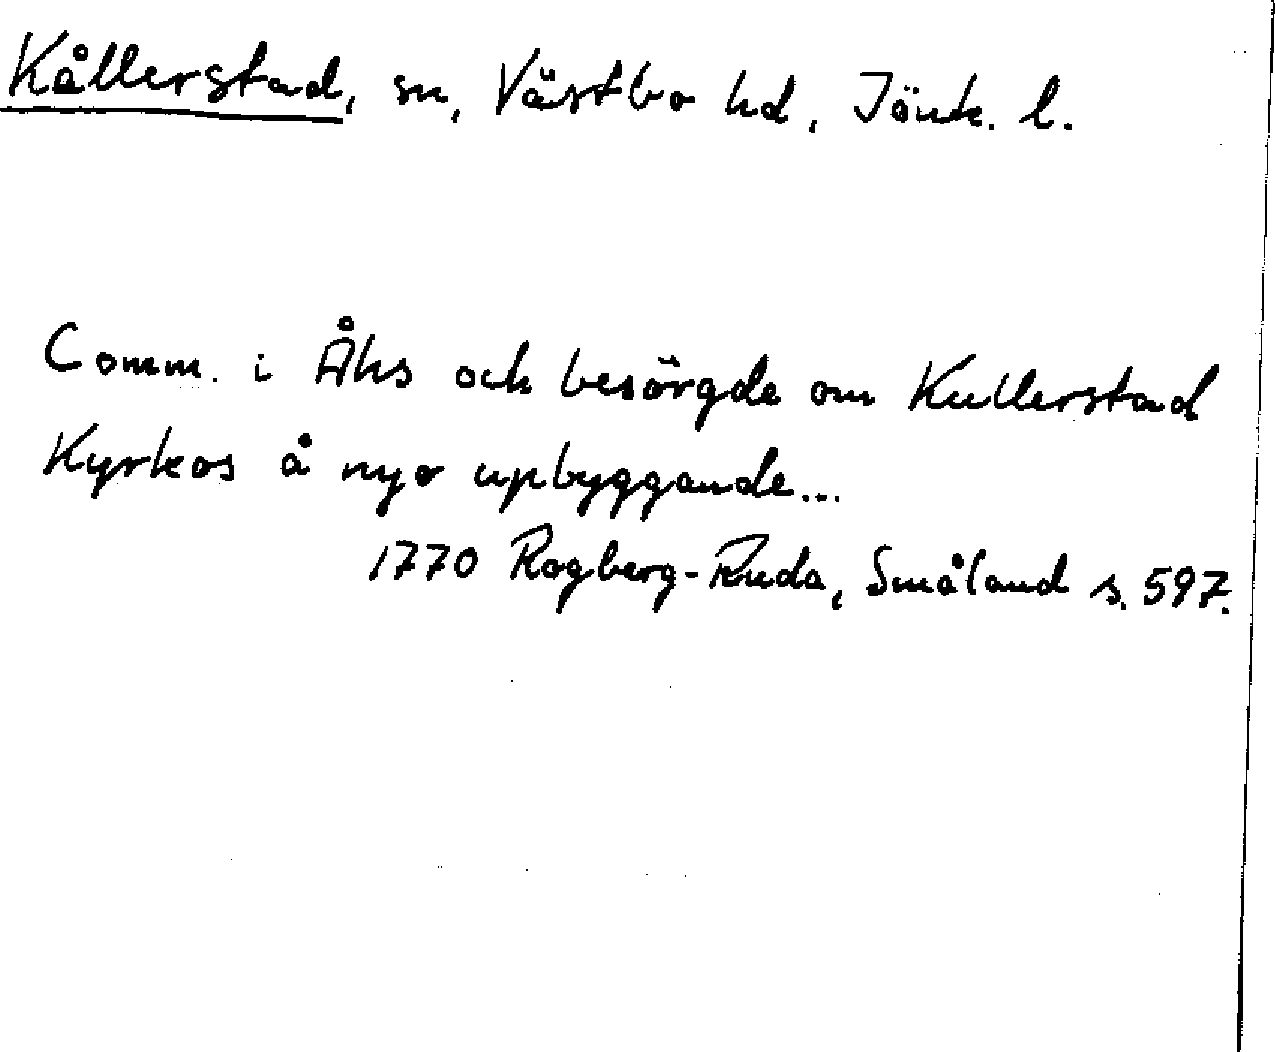 Kållerstad, sn, Västbo hd, Jönk. l.
Comm. i Åhs och besörgde om Kullerstad
Kyrkos å nyo upbyggande...
1770 Rogberg-Ruda, Småland s. 597.